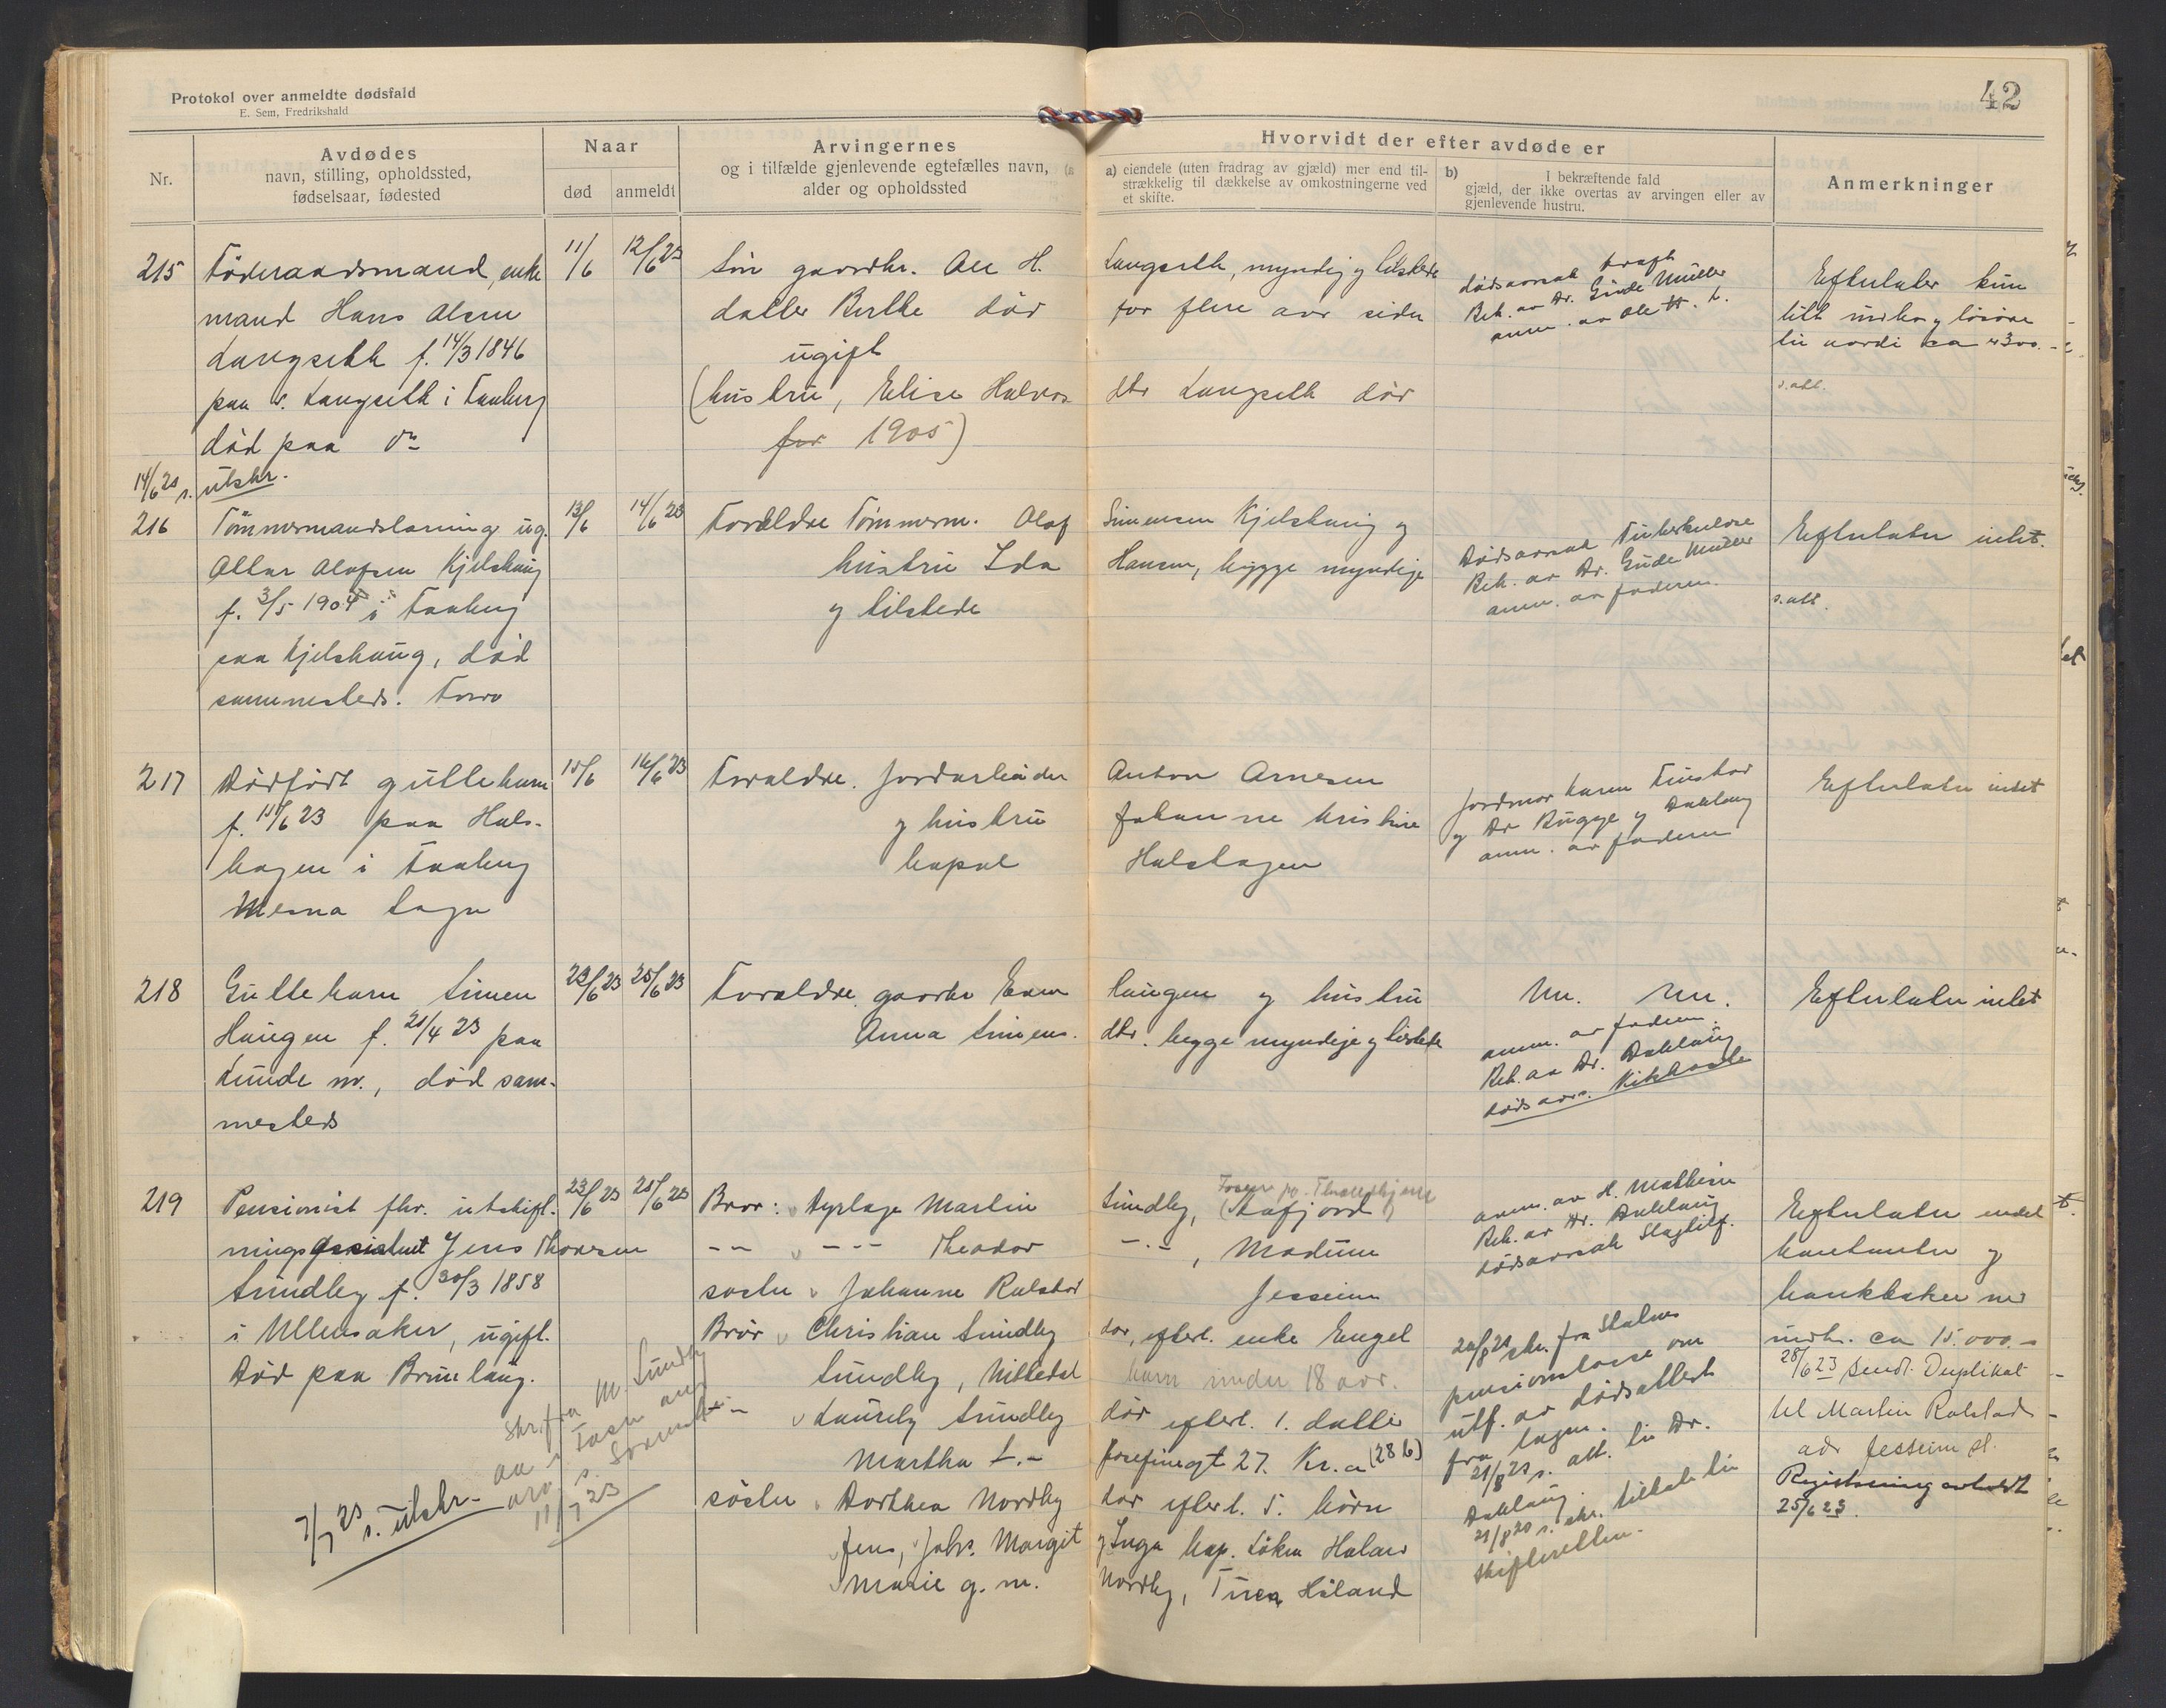 42
Protokol over anmeldte dødsfald
E. Sem, Fredrikshald
Nr.
Avdødes
navn, stilling, opholdssted,
fødselsaar, fødested
Naar
død
anmeldt
Arvingernes
og i tilfælde gjenlevende egtefælles navn,
alder og opholdssted
Hvorvidt der efter avdøde er
a) eiendele (uten fradrag av gjæld) mer end til-
strækkelig til dækkelse av omkostningerne ved
et skifte.
b) I bekræftende fald
gjæld, der ikke overtas av arvingen eller av
gjenlevende hustru.
Anmerkninger
215
Föderaadsmand, enke
mand Hans Olsen
Langseth f. 14/3 1846
paa Langseth i Faaberg
död paa do
14/6 23 s. utskr.
11/6
12/6 23
Sön gaardbr. Ole H.
datter Berthe dör
ugift
(hustru, Elise Halvors
for 1905)
Langseth, myndig og tilstede
for flere aar siden
dtr Langseth dör
dödsaarsak
Beh. av Dr. Gude Müller
anm. av Ole H. L.
Efterlater kun
litt indbo og lösöre
til værdi ca 300.-
s. att.
216
Tömmermandslærling ug.
Olafsen Kjelshaug
f. 3/5 1904 i Faaberg
paa Kjelshaug, död
sammesteds.
13/6
14/6 23
Forældre Tömmerm. Olaf
hustru Ida
og tilstede
Simensen Kjelshaug og
Hansen, begge myndige
Dödsaarsak Tuberkulose
Beh. av Dr. Gude Müller
anm. av faderen.
Efterlater intet.
s. att.
217
Dödfödt guttebarn
f. 15/6 23 paa Hals-
hagen i Faaberg
Mesna sogn
15/6
16/6 23
Forældre. Jordarbeider
og hustru
Anton Arnesen
Johanne Kristine
Halshagen
Jordmor Karen
og Dr Rugge og Dahlaug
anm. av faderen
Efterlater intet
218
Guttebarn Simen
Haugen f. 21/4 23 paa
Lunde n., död sam-
mesteds
23/6 23
25/6 23
Forældre. gaardbr Even
Anna Simens.
Haugen og hustru
dtr. begge myndige og tilstede
anm. av faderen.
Beh. av Dr. Dahlaug
dödsaars. Kikhoste
Efterlater intet
219
Pensionist fhv. utskift-
ningsassistent Jens Thoresen
Sundby f. 30/3 1858
i Ullensaker, ugift.
Död paa Brunlaug.
23/6 23
25/6 23
Bror: Dyrlæge Martin
-- -- Theodor
söster Johanne Ralstad
Bror Christian Sundby
Sundby, Nittedal
-- Laurits Sundby
Martha L.-
söster Dorthea Nordby
Jens, Johs. Margit
Marie g. m.
Sundby, (Tafjord)
-.-, Modum
Jesseim
dör, efterl. enke Engel
barn under 18 aar.
dör efterl. 1. datter
Josefine gt 27. Kr.a (28 b)
dör efterl. 5. börn
og Inga
Nordby, Höland
anm. av H. Mathisen
Beh. av Dr. Dahlaug
dödsaarsak Slagtilf.
20/8 23 skr. fra Statens
pensionskasse om
utf. av dödsattest
fra lægen.
21/8 23 s. att. til Dr.
Dahlaug.
21/8 23 s. skr. tilbake til
skifteretten.
Efterlater endel
kontanter og
bankböker med
indh. ca 15.000.-
28/6 23 sendt Duplikat
til Martin Ralstad
adr Jessheim st.
Registrering avholdt
25/6 23.
7/7 23 s. utskr.
skr. fra M. Sundby
11/7 23